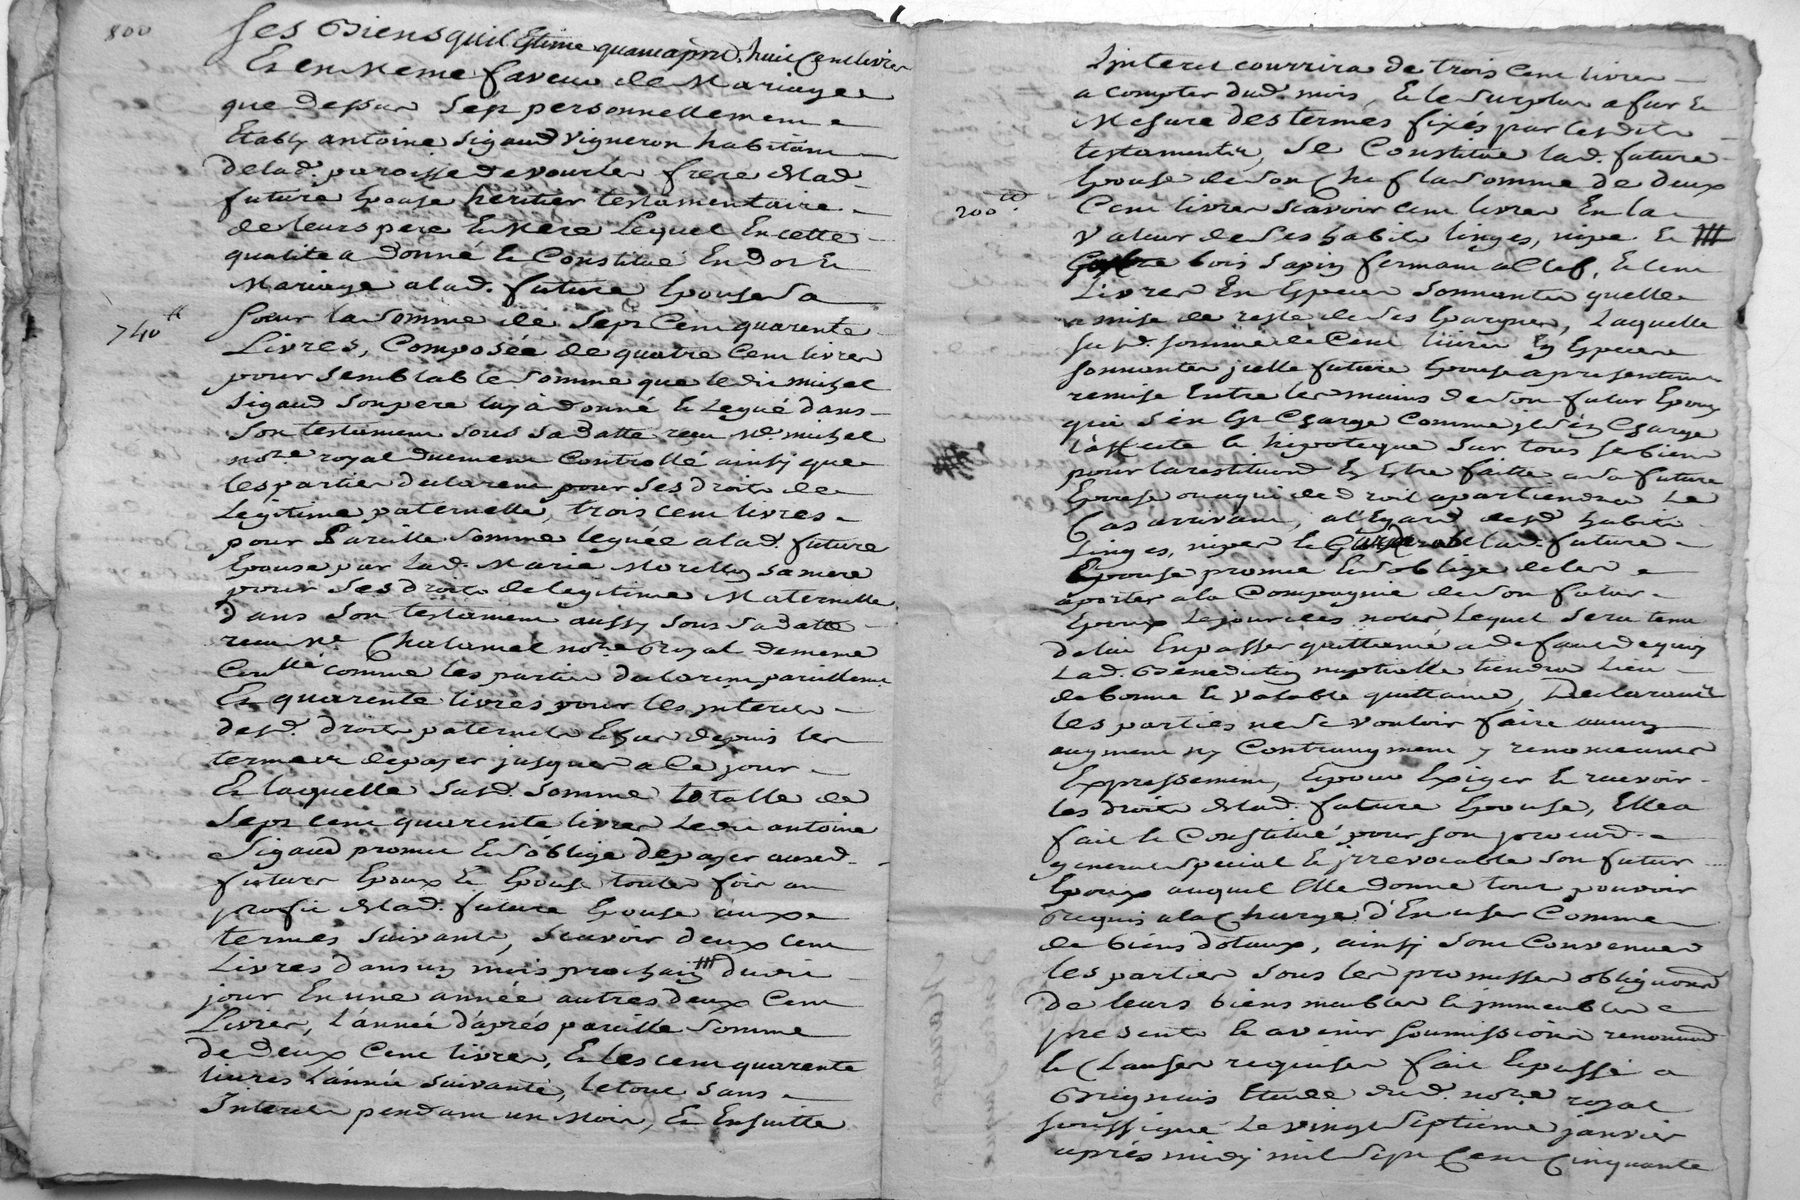 800
ses Biens quil Estime quant a pnt huit Cent livres
Et en Meme faveur de Mariage
que dessus Sest personnellement
Etably antoine Sigaud Vigneron habitant
de lad. paroisse de vourles frere de lad.
future Epouse heritier testamentaire
de leurs pere & Mere Lequel En cette
qualite a donné & Constitue En Dot &
Mariage a lad. future Epouse Sa
740 ₶
Soeur la Somme de Sept Cent quarente
Livres, Composée de quatre Cent livres
pour Semblable Somme que ledit michel
Sigaud Son pere luy à donné & Legué dans
Son testament Sous Sa datte recu Me. michel
nore. royal duement Controllé ainsy que
les parties declarent pour Ses droits de
Legitime paternelle, trois cent livres
pour Pareille Somme leguée a lad. future
Epouse par lad. Marie Morellon Sa mere
pour Ses droits de legitime Maternelle
dans Son testament aussy Sous Sa datte
recu Me. Chalamel nore. Royal de meme
Conllé comme les parties declarent pareillement
Et quarente livres pour les jnterets
desd. droits paternels Echus depuis les
termes de payer jusques a ce jour
Et laquelle Susd. Somme totalle de
Sept Cent quarente livres Ledit antoine
Sigaud promet & Soblige de payer auxd.
futurs Epoux & Epouse toutes fois au
profit de lad. future Epouse aux
termes Suivants, Scavoir deux Cent
Livres dans un mois prochain dudit
jour En une année autres deux Cent
Livres, L'année d'après pareille Somme
de deux Cent livres, & les cent quarente
livres L'année Suivante, le tout Sans
Interets pendant un Mois, Et Ensuitte
Linteret courrira de trois Cent livres
a compter dud. mois, & le Surplus a fur &
Mesure des termes fixés par lesdits
testaments, Se Constitue lad. future
Epouse de Son Chef la Somme de deux
200 ₶
Cent livres Scavoir cent livres En la
Valeur de Ses habits linges, nipes &
Garderobe bois Sapin fermant a Clef, & Cent
Livres En Especes Sonnantes quelle
a mise de reste de Ses Epargnes, Laquelle
susd. Somme de Cent livres En Especes
Sonnantes jcelle future Epouse a presentement
remise Entre les mains de Son futur Epoux
qui Sen Est Chargé Comme jl Sen Charge
L'assecute & hipoteque Sur tous Ses biens
pour la restitution En Estre faitte a Sa future
Epouse ou a qui de droit apartiendra Le
Cas arrivant, a l'Egard desd. habits
Linges, nipes & Garderobe lad. future
Epouse promet & Soblige de les
aporter a la Compagnie de Son futur
Epoux Le jour des noces Lequel Sera tenu
de luy En passer quittance a defaut de quoy
Lad. Benediction nuptialle tiendra Lieu
de bonne & valable quittance, Declarant
les parties ne Se vouloir faire aucun
augment ny Contraugment y renonceants
Expressement, Epour Exiger & recevoir
les droits de lad. future Epouse, Elle a
fait & Constitué pour Son procur.
general Special & jrrevocable Son futur
Epoux auquel Elle donne tout pouvoir
requis a la Charge d'En user Comme
de biens dotaux, ainsy Sont Convenues
les parties Sous les promesses obligaons
de leurs biens meubles & jmmeubles
presents & avenir Soumissions renond.
& Clauses requises fait & passé a
Brignais Etude dud. nore. royal
soussigné Le vingt Septieme janvier
après midy mil Sept Cent Cinquante